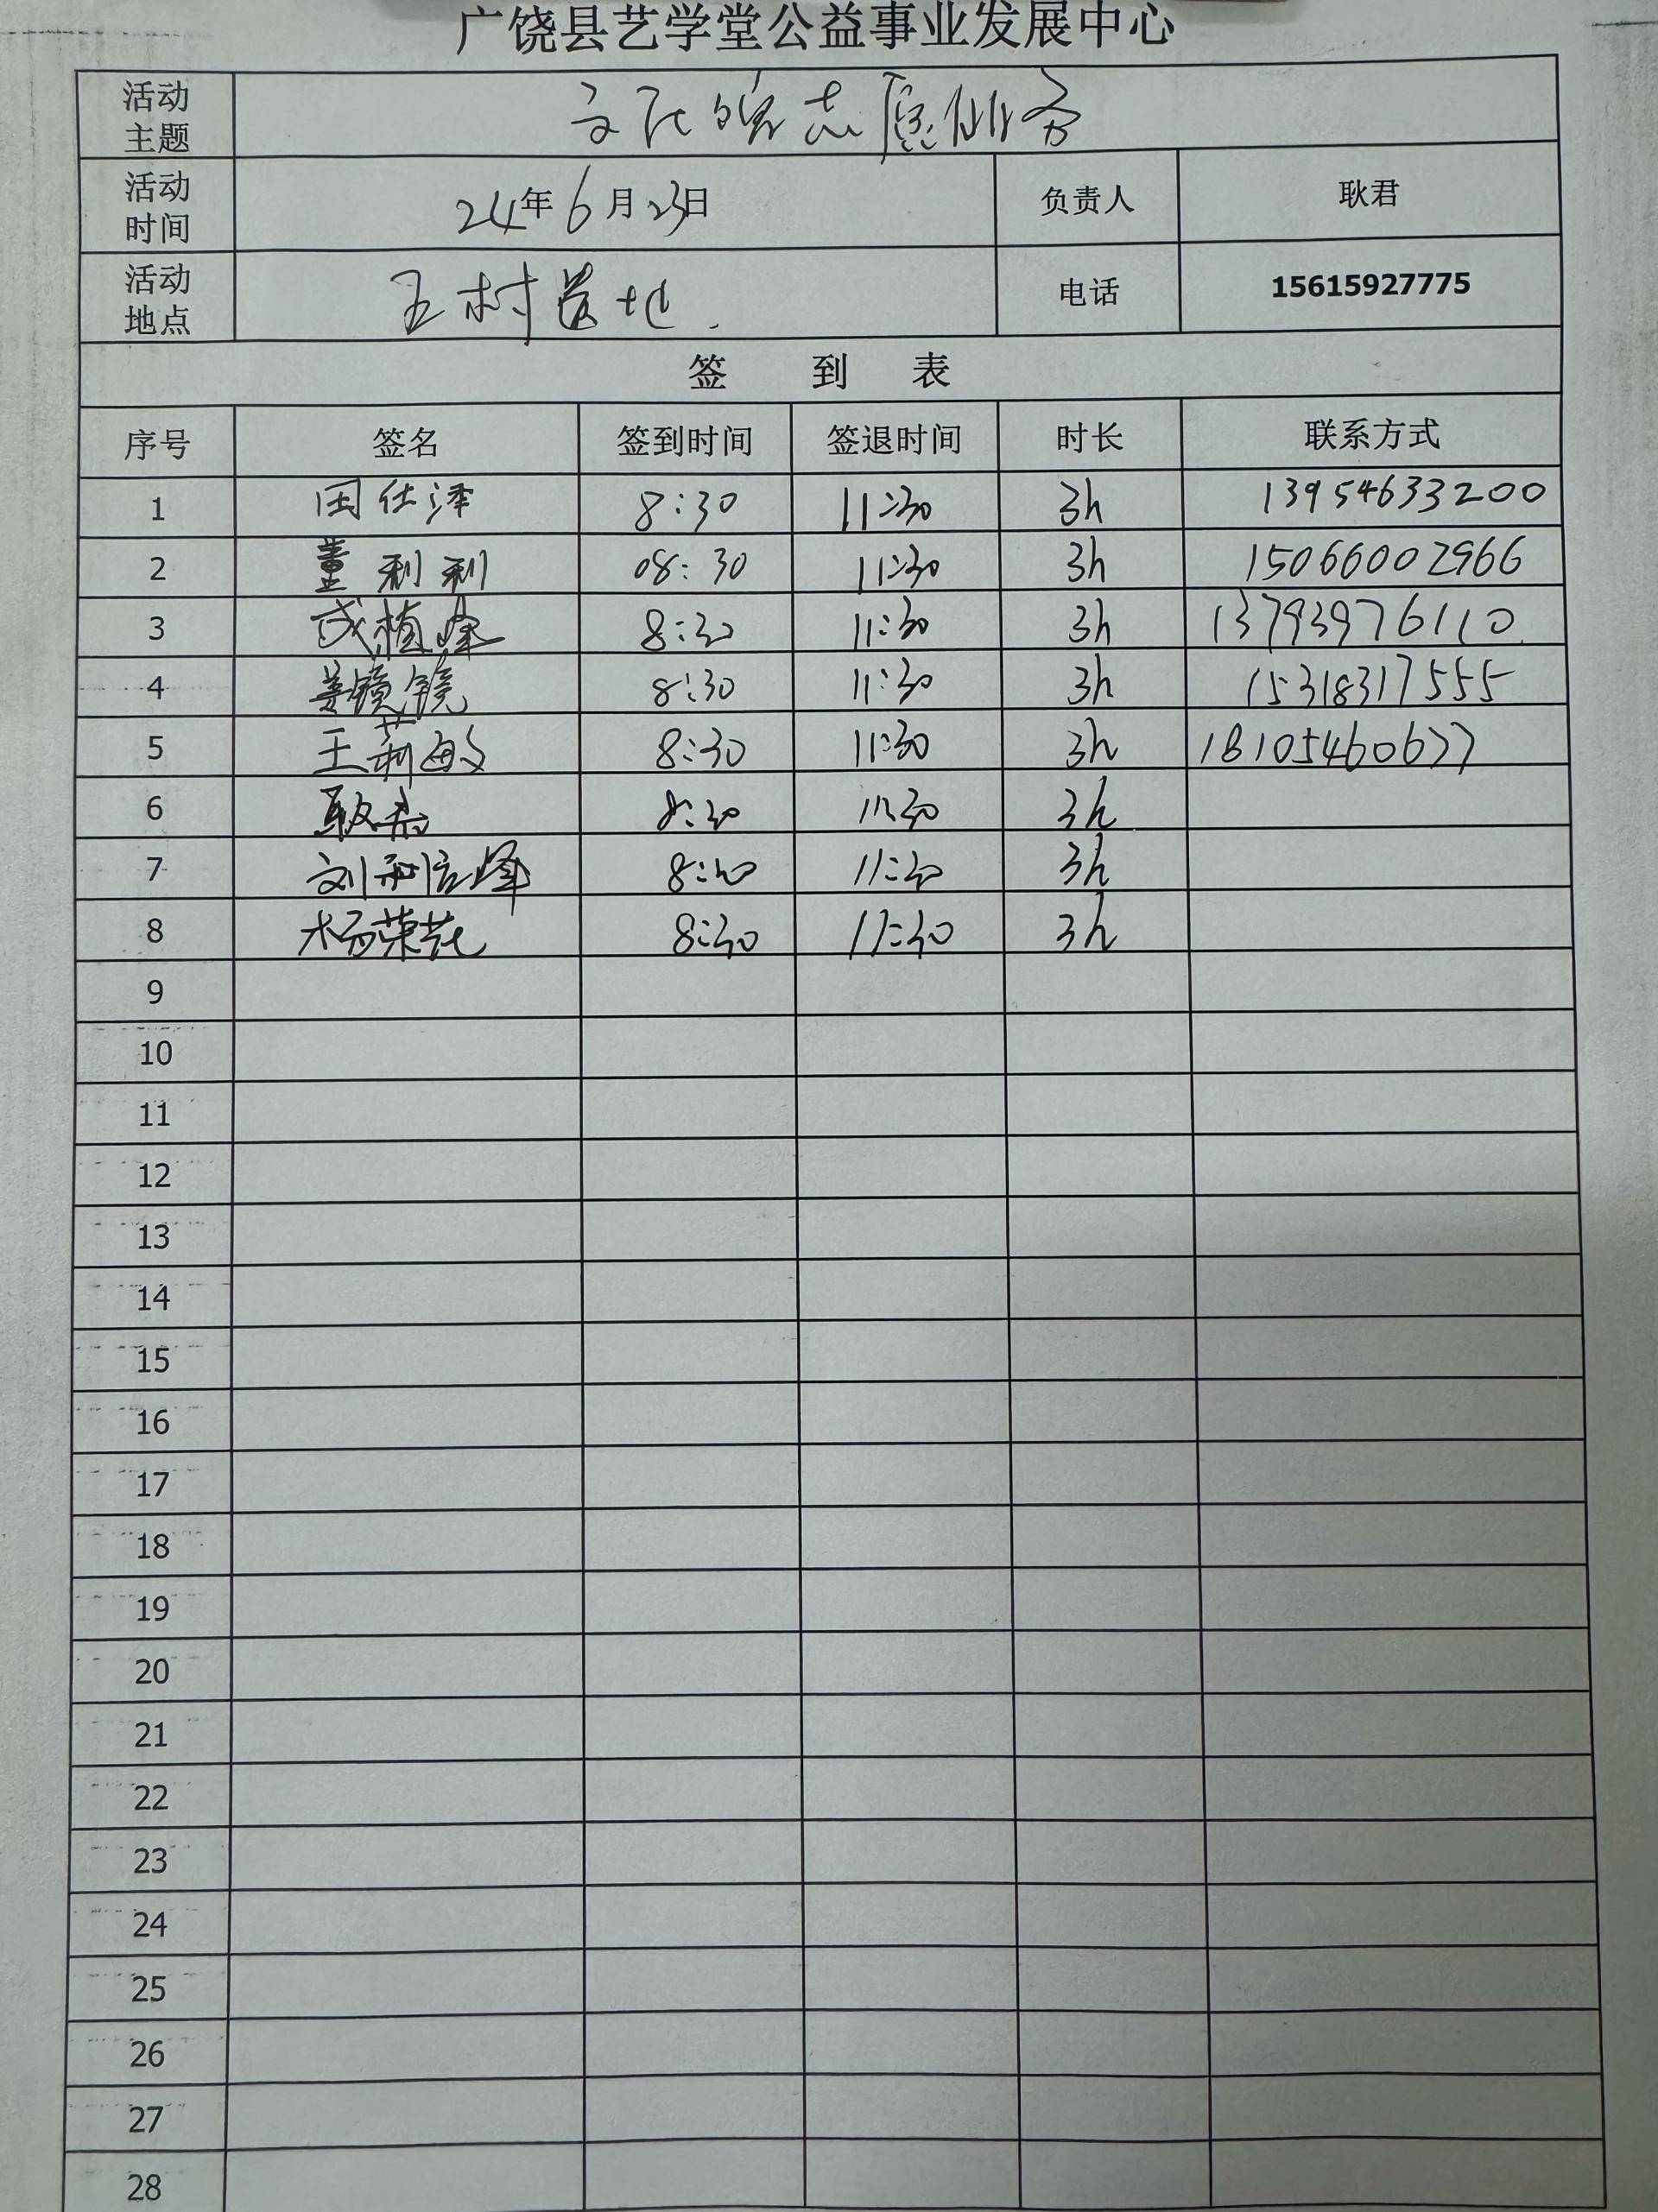 广饶县艺学堂公益事业发展中心
活动主题 志愿服务
活动时间 24年6月23日 负责人 耿君
活动地点 王村营地. 电话 15615927775
签 到 表
序号 签名 签到时间 签退时间 时长 联系方式
1 田仕泽 8:30 11:30 3h 13954633200
2 董利利 08:30 11:30 3h 15066002966
3 成植峰 8:30 11:30 3h 13793976110
4 姜镜镜 8:30 11:30 3h 15318317555
5 王莉敏 8:30 11:30 3h 18105460677
6 8:30 11:30 3h
7 刘 峰 8:30 11:30 3h
8 杨荣花 8:30 11:30 3h
9
10
11
12
13
14
15
16
17
18
19
20
21
22
23
24
25
26
27
28